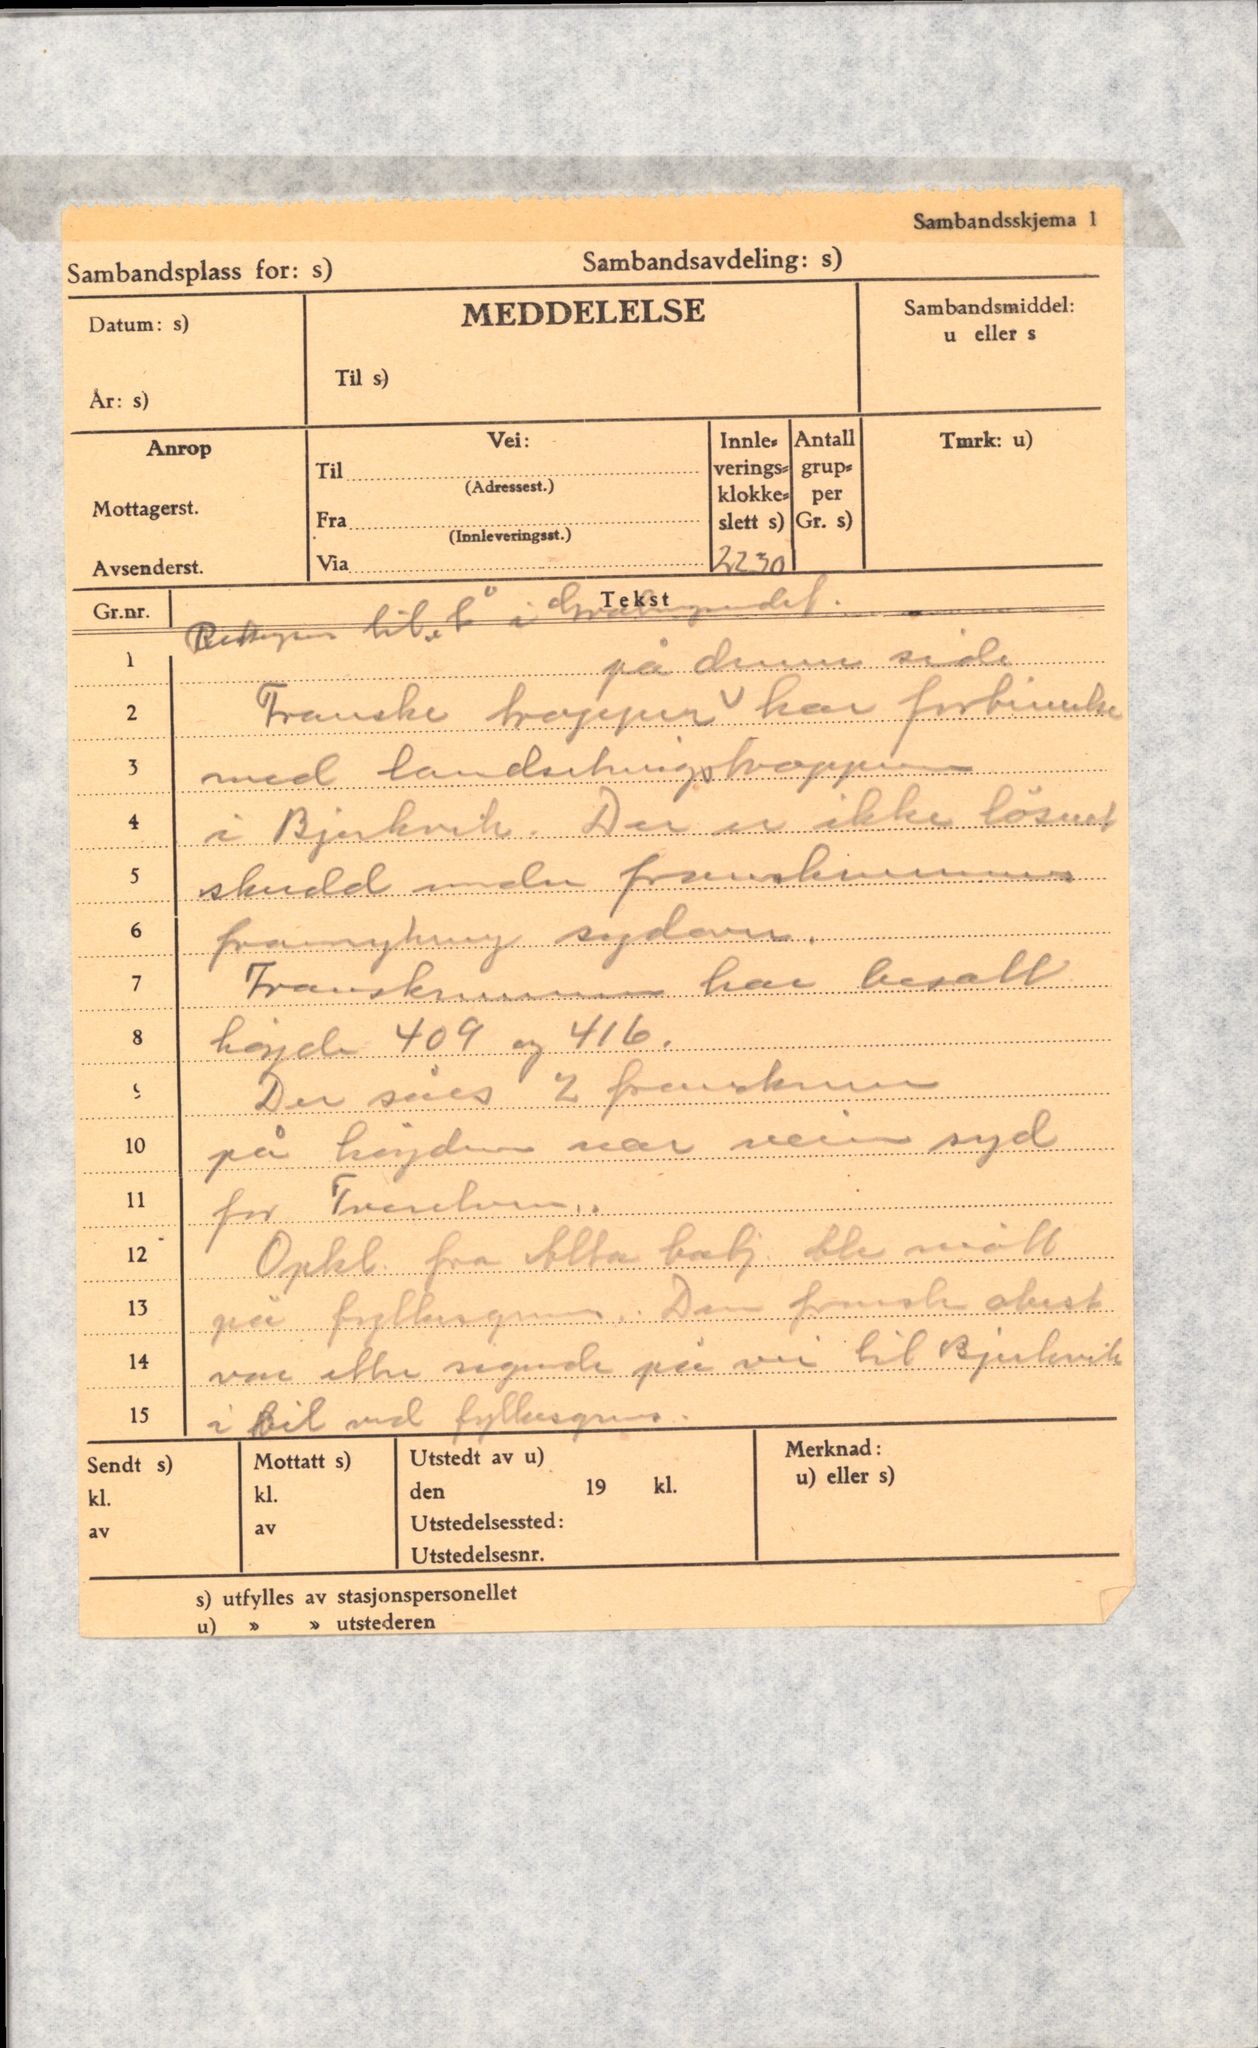 Sambandsskjema 1
Sambandsplass for: s) Sambandsavdeling: s)
Datum: s)
År: s)
MEDDELELSE
Til s)
Sambandsmiddel:
u eller s
Anrop
Mottagerst.
Avsenderst.
Vei:
Til
(Adressest.)
Fra
(Innleveringsst.)
Via
Innle-
verings-
klokke-
slett s)
2230
Antall
grup-
per
Gr. s)
Tmrk: u)
Gr.nr. Tekst
til i
1 på denne side
2 Franske tropper har forbindelse
3 med landsetningstroppene
4 i Bjerkvik. Der er ikke løsnet
5 skudd under franskmennenes
6 framrykning sydover.
7 Franskmennene har besatt
8 høyde 409 og 416.
9 Der såes 2 franskmenn
10 på høyden nær veien syd
11 for Tverelven.
12 Opkl. fra Alta batj. ble møtt
13 på fylkesgrens. Den franske oberst
14 var etter sigende på vei til Bjerkvik
15 i bil ved fylkesgrens.
Sendt s)
kl.
av
Mottatt s)
kl.
av
Utstedt av u)
den 19 kl.
Utstedelsessted:
Utstedelsesnr.
Merknad:
u) eller s)
s) utfylles av stasjonspersonellet
u) » » utstederen